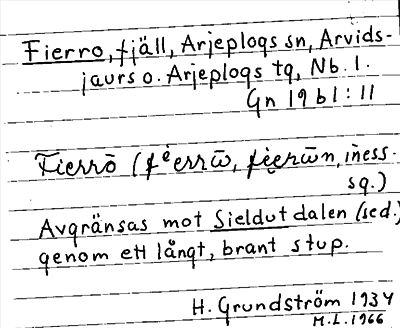 Fierro, fjäll, Arjeplogs sn, Arvids-
jaurs o. Arjeplogs tg, Nb. l.
Gn 1961:11
Fierrō (fi̇errω̄, fi̇ẹrω̄n, iness.
sg.)
Avgränsas mot Sieldutdalen (sed.)
genom ett långt, brant stup.
H. Grundström 1934
M.L. 1966